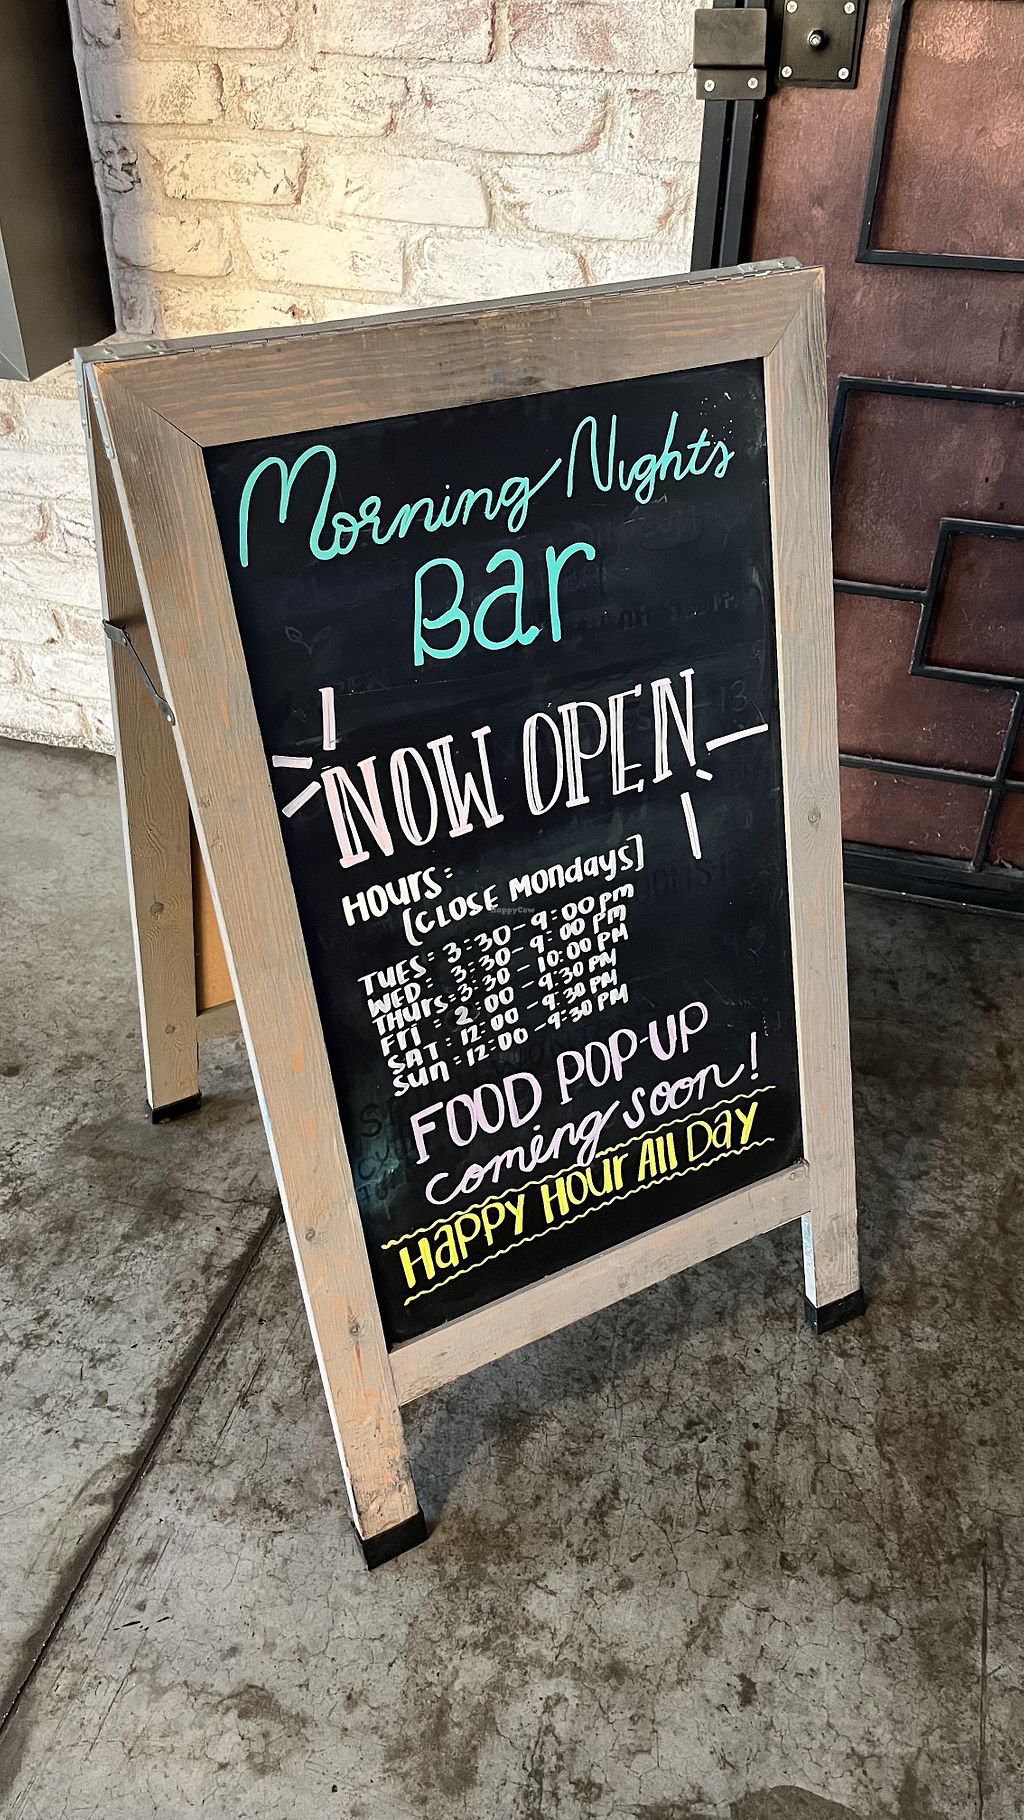 Morning Nights
Bar
NOW OPEN
HOURS:
[CLOSE MONDAYS]
TUES: 3:30-9:00 PM
WED: 3:30-9:00 PM
THURS: 3:30-10:00 PM
FRI: 2:00-9:30 PM
SAT: 12:00-9:30 PM
SUN: 12:00-9:30 PM
FOOD POP-UP
coming soon!
Happy Hour All Day
HappyCow